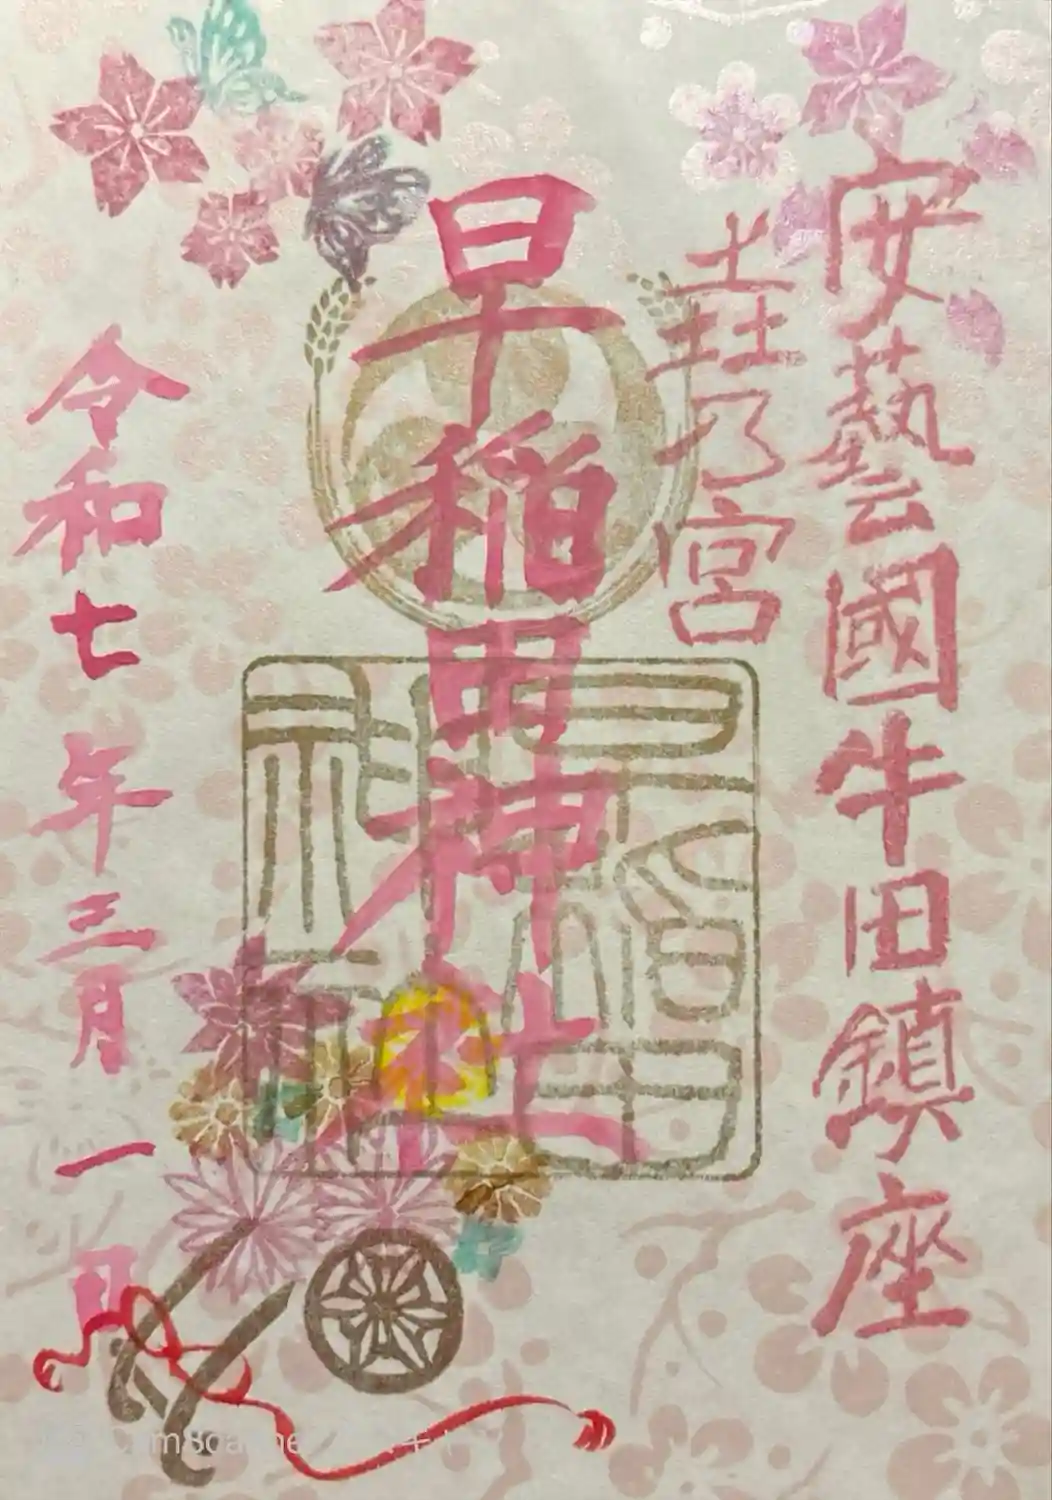 安藝國牛田鎮座
壵乃宮
早稲田神社
早稲田神社
令和七年三月一日